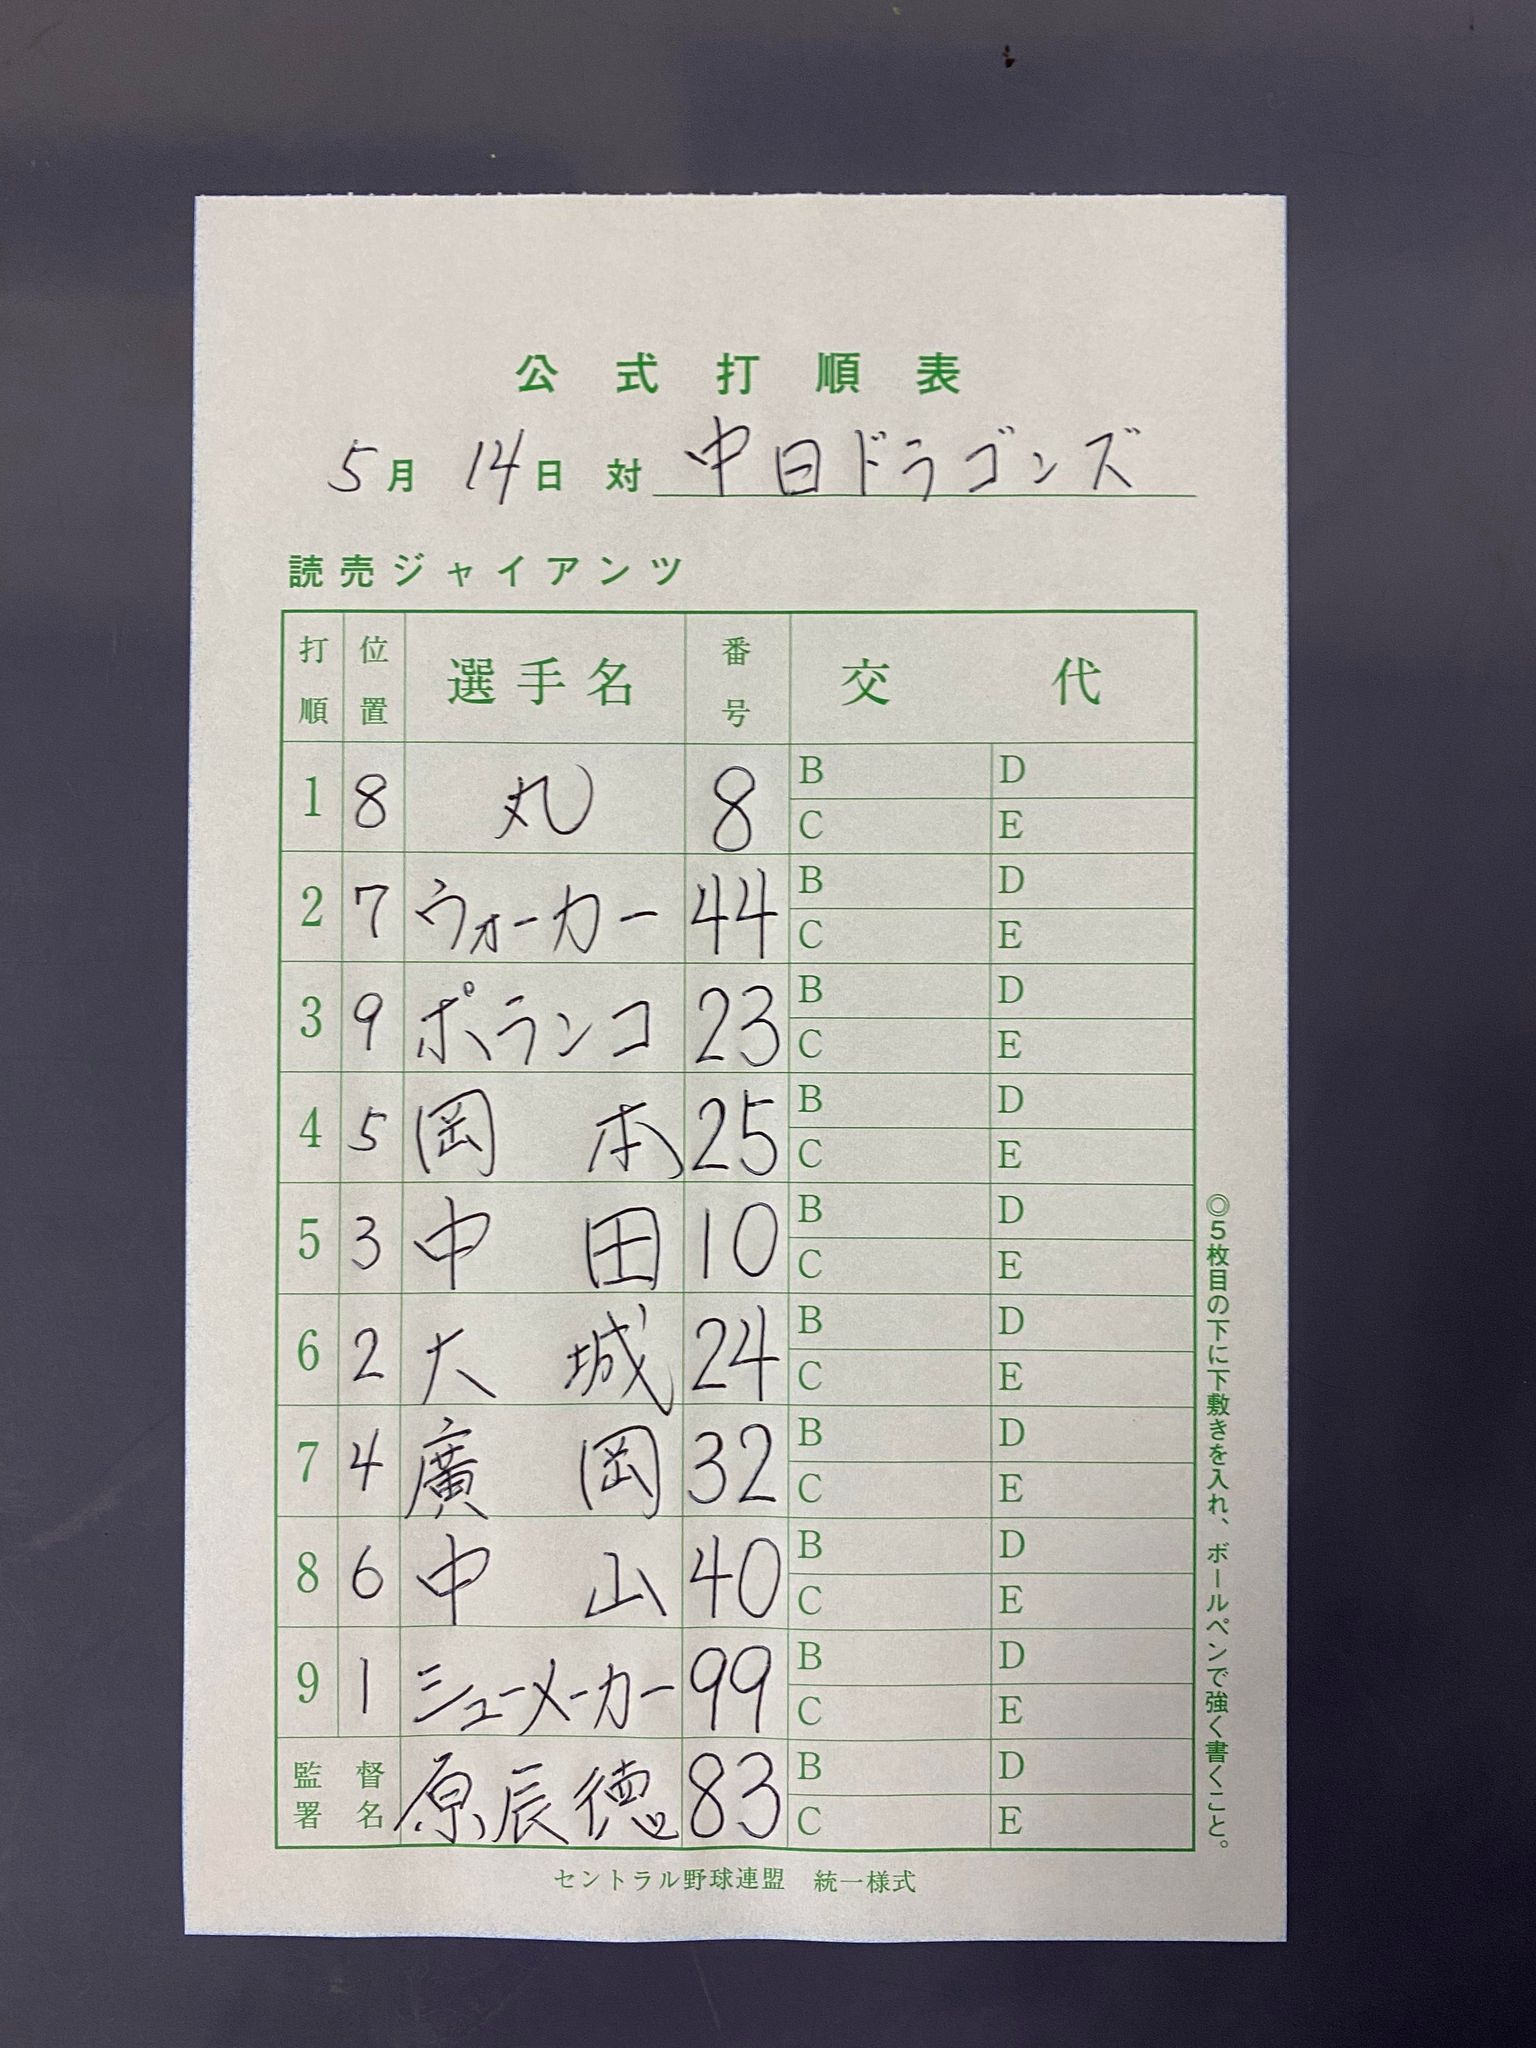 公式打順表
5月 14日 対 中日ドラゴンズ
読売ジャイアンツ
打順 位置 選手名 番号 交代
1 8 丸 8 B D
C E
2 7 ウォーカー 44 B D
C E
3 9 ポランコ 23 B D
C E
4 5 岡本 25 B D
C E
5 3 中田 10 B D
C E
6 2 大城 24 B D
C E
7 4 廣岡 32 B D
C E
8 6 中山 40 B D
C E
9 1 シューメーカー 99 B D
C E
監督署名 原辰徳 83 B D
C E
セントラル野球連盟 統一様式
◎5枚目の下に下敷きを入れ、ボールペンで強く書くこと。